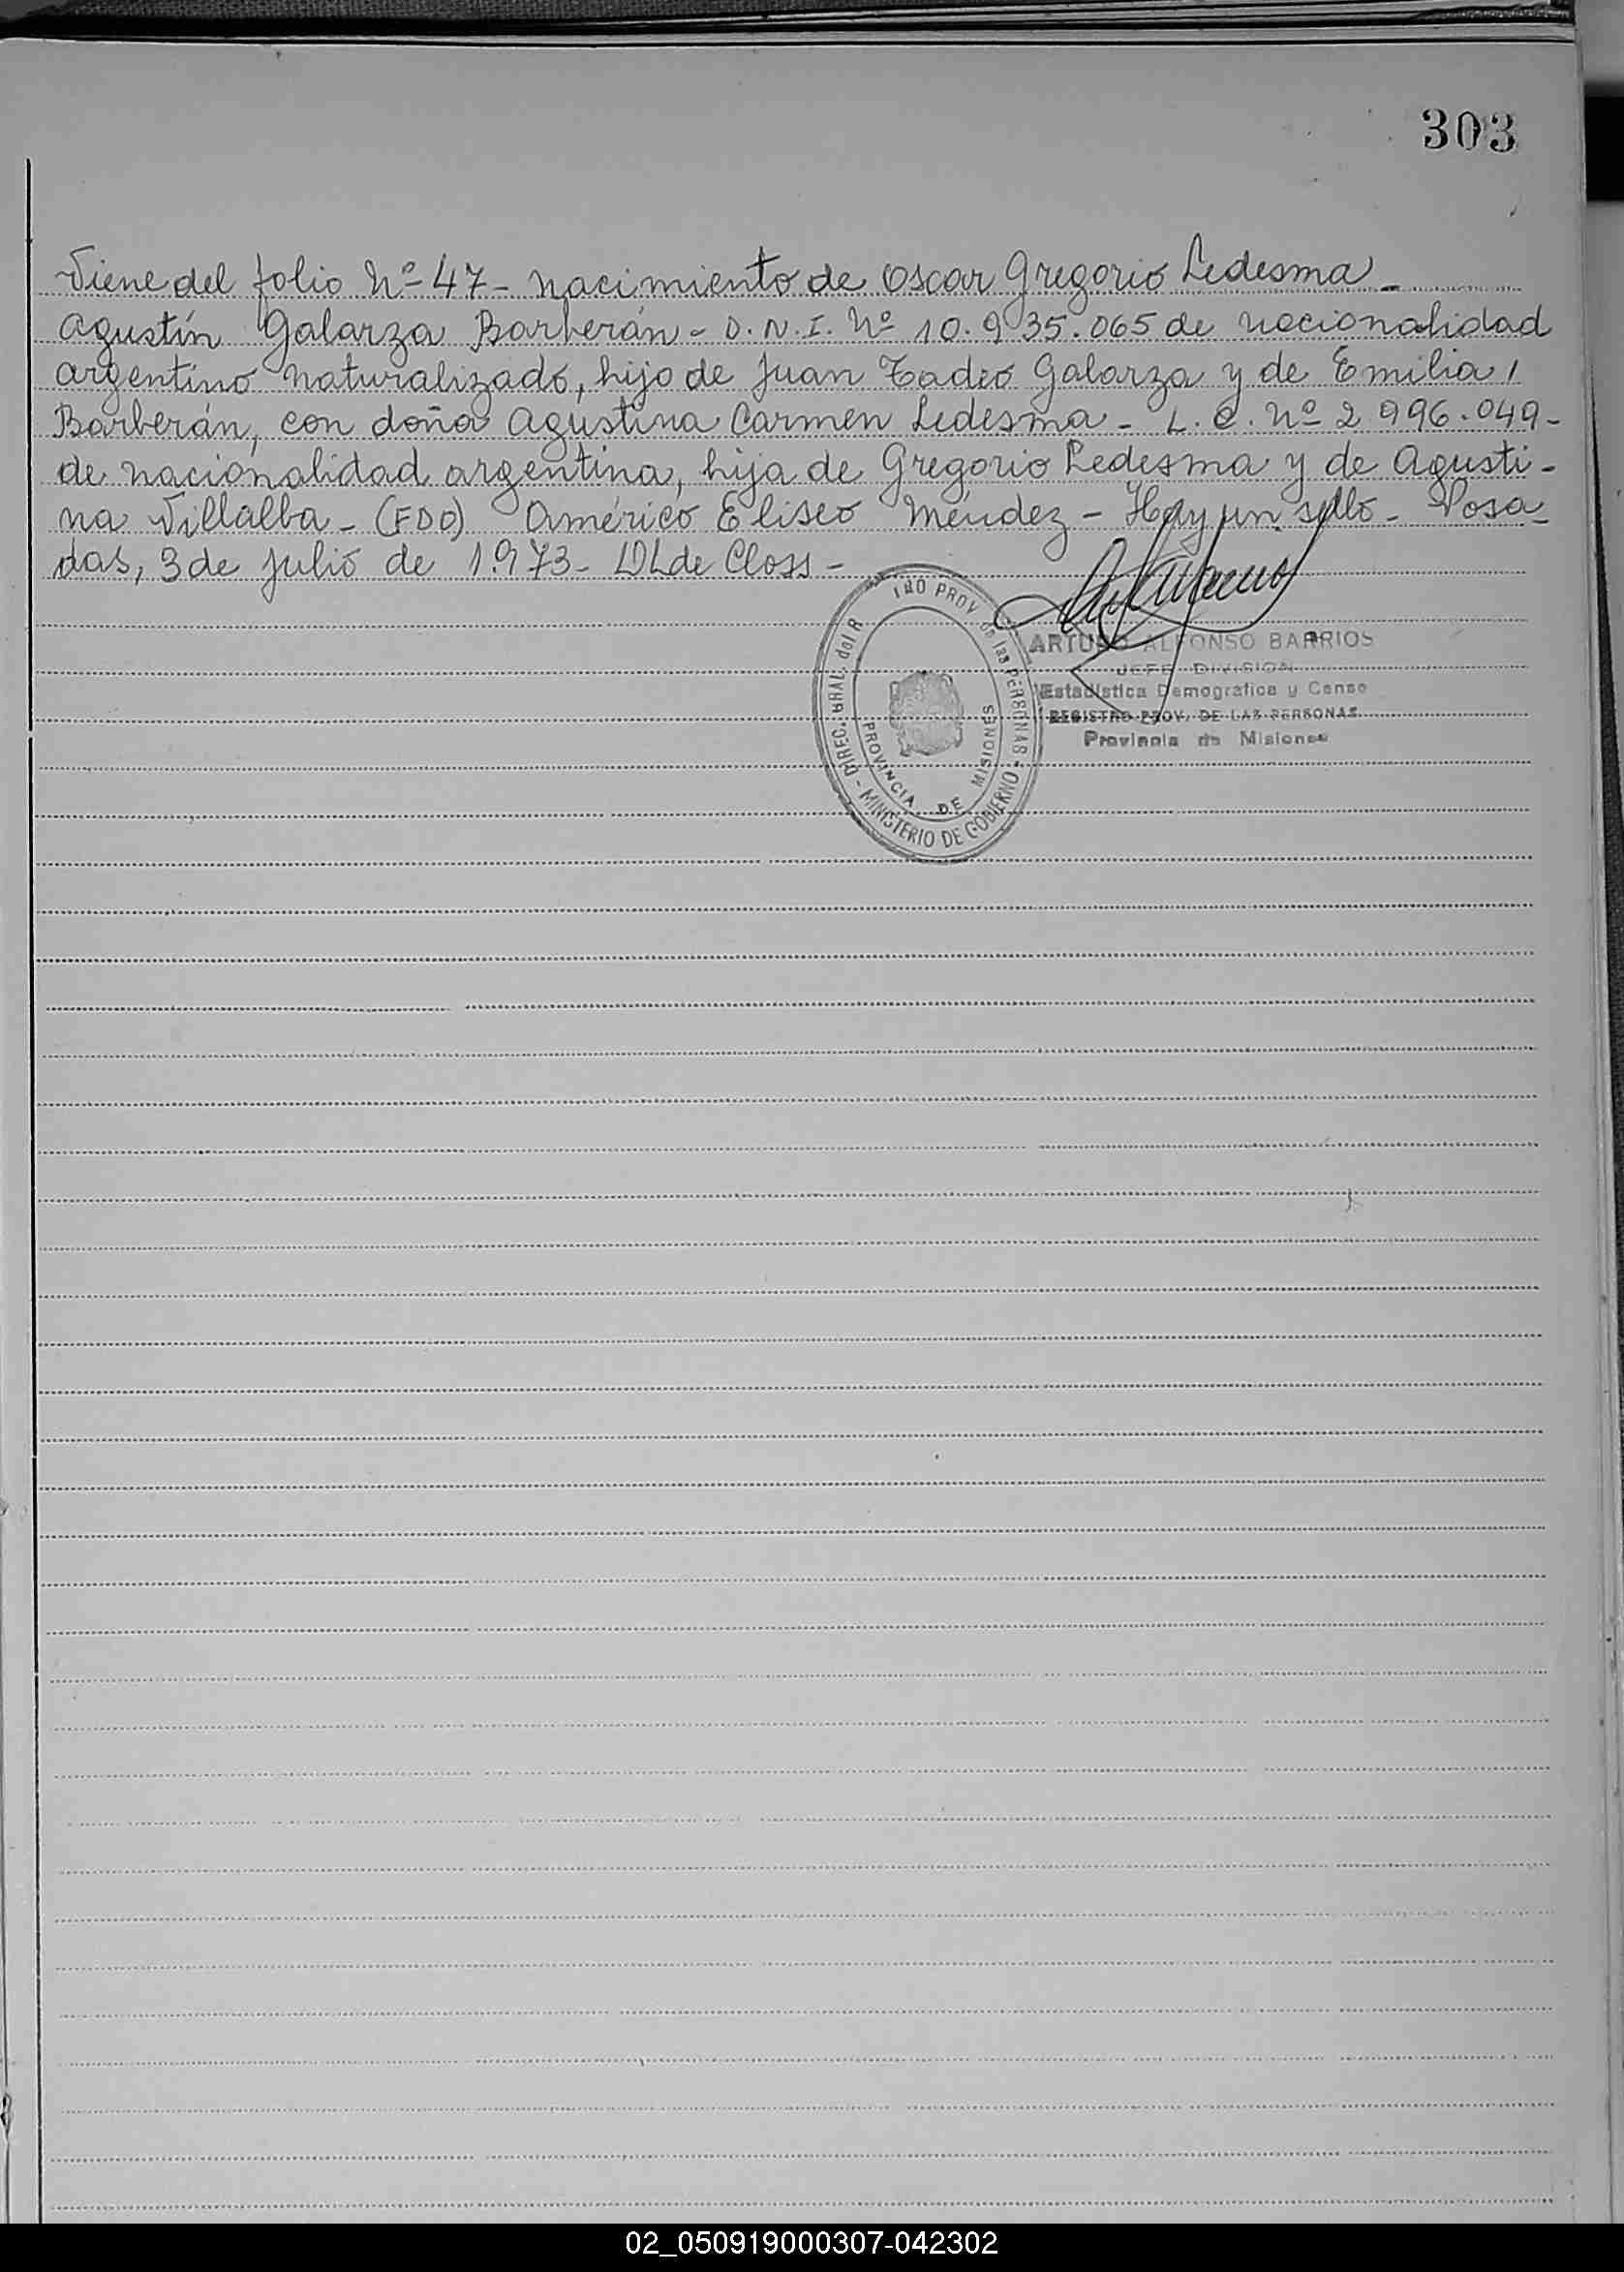 303
Viene del folio Nº 47 - Nacimiento de Oscar Gregorio Ledesma -
Agustín Galarza Barberán - D.N.I. Nº 10.935.065 de nacionalidad
argentino naturalizado, hijo de Juan Tadeo Galarza y de Emilia /
Barberán, con doña Agustina Carmen Ledesma - L.C. Nº 2 996.049 -
de nacionalidad argentina, hija de Gregorio Ledesma y de Agusti-
na Villalba - (FDO) Américo Eliseo Méndez - Hay un sello - Posa-
das, 3 de julio de 1.973 - de Closs -
DIREC. GRAL. del R TRO PROV de las PERSONAS - MINISTERIO DE GOBIERNO -
PROVINCIA DE MISIONES
ARTURO ALFONSO BARRIOS
JEFE DIVISION
Estadística Demografica y Censo
REGISTRO PROV. DE LAS PERSONAS
Provincia de Misiones
02_050919000307-042302